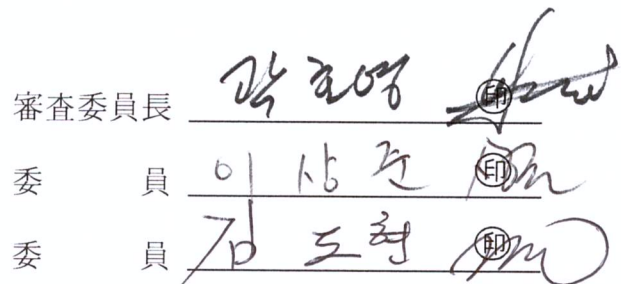 審査委員長 곽호영 ㊞
委 員 이상준 ㊞
委 員 김도현 ㊞